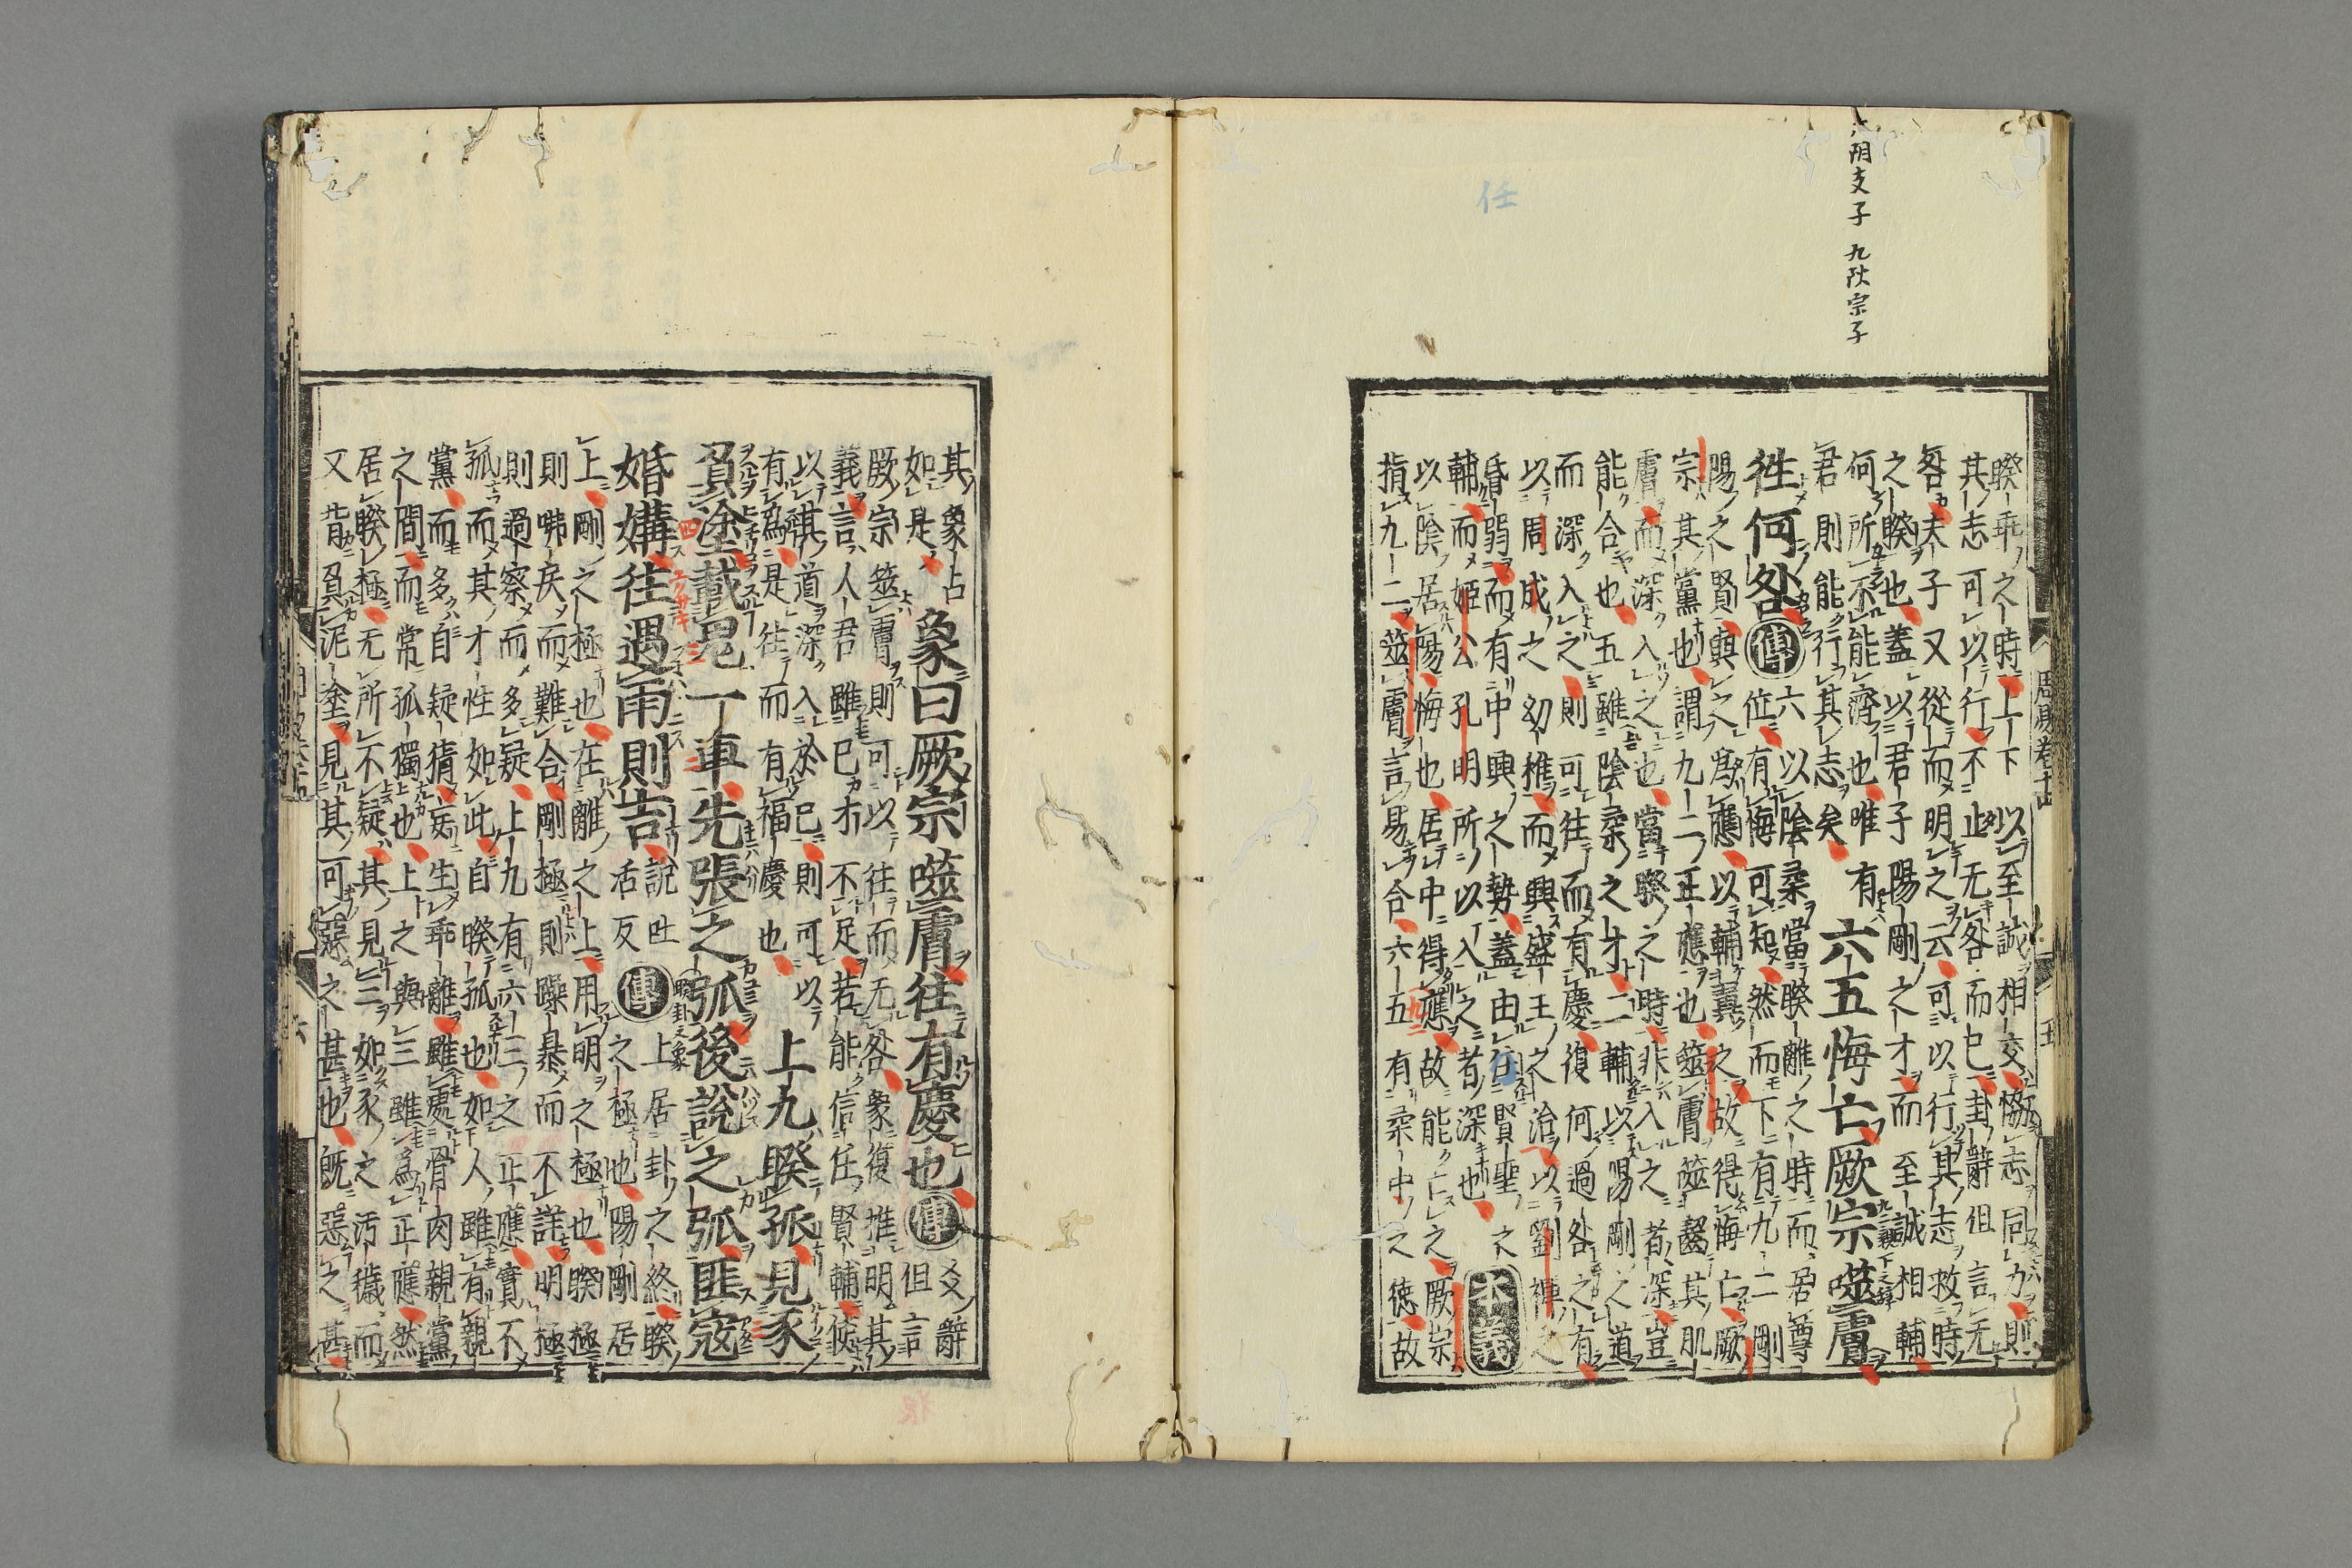 六阴支子 九阳宗子
任
睽乖之時上下以至誠相交恊志同力則
其志可以行不止无咎而已卦辭但言无
咎夫子又從而明之云可以行其志救時
之睽也蓋以君子陽剛之才而至誠相輔
何所不能濟也唯有
君則能行其志矣
六五悔亡厥宗噬膚
往何咎
傳
六以陰柔當睽離之時而居尊
位有悔可知然而下有九二剛
陽之賢與之爲應以輔翼之故得悔亡厥
宗其黨也謂九二正應也噬膚噬齧其肌
膚而深入之也當睽之時非入之者深豈
能合也五雖陰柔之才二輔以陽剛之道
而深入之則可往而有慶復何過咎之有
以周成之幼稚而興盛王之治以劉禪之
昏弱而有中興之勢蓋由任賢聖之
輔而姬公孔明所以入之者深也
本義
以陰居陽悔也居中得應故能亡之厥宗
指九二噬膚言易合六五有柔中之德故
其象占
如是
象曰厥宗噬膚往有慶也
傳
爻辭
但言
厥宗噬膚則可以往而无咎象復推明其
義言人君雖已才不足若能信任賢輔使
以其道深入於已則可以
有為是往而有福慶也
上九睽孤見豕
負塗載鬼一車先張之弧後說之弧匪寇
婚媾往遇雨則吉
說吐
活反
傳
上居卦之終睽
之極也陽剛居
上剛之極也在離之上用明之極也睽極
則咈戾而難合剛極則躁暴而不詳明極
則過察而多疑上九有六三之正應實不
孤而其才性如此自睽孤也如人雖有親
黨而多自疑猜妄生乖離雖處骨肉親黨
之間而常孤獨也上之與三雖為正應然
居睽極无所不疑其見三如豕之汚穢而
又背負泥塗見其可惡之甚也既惡之甚